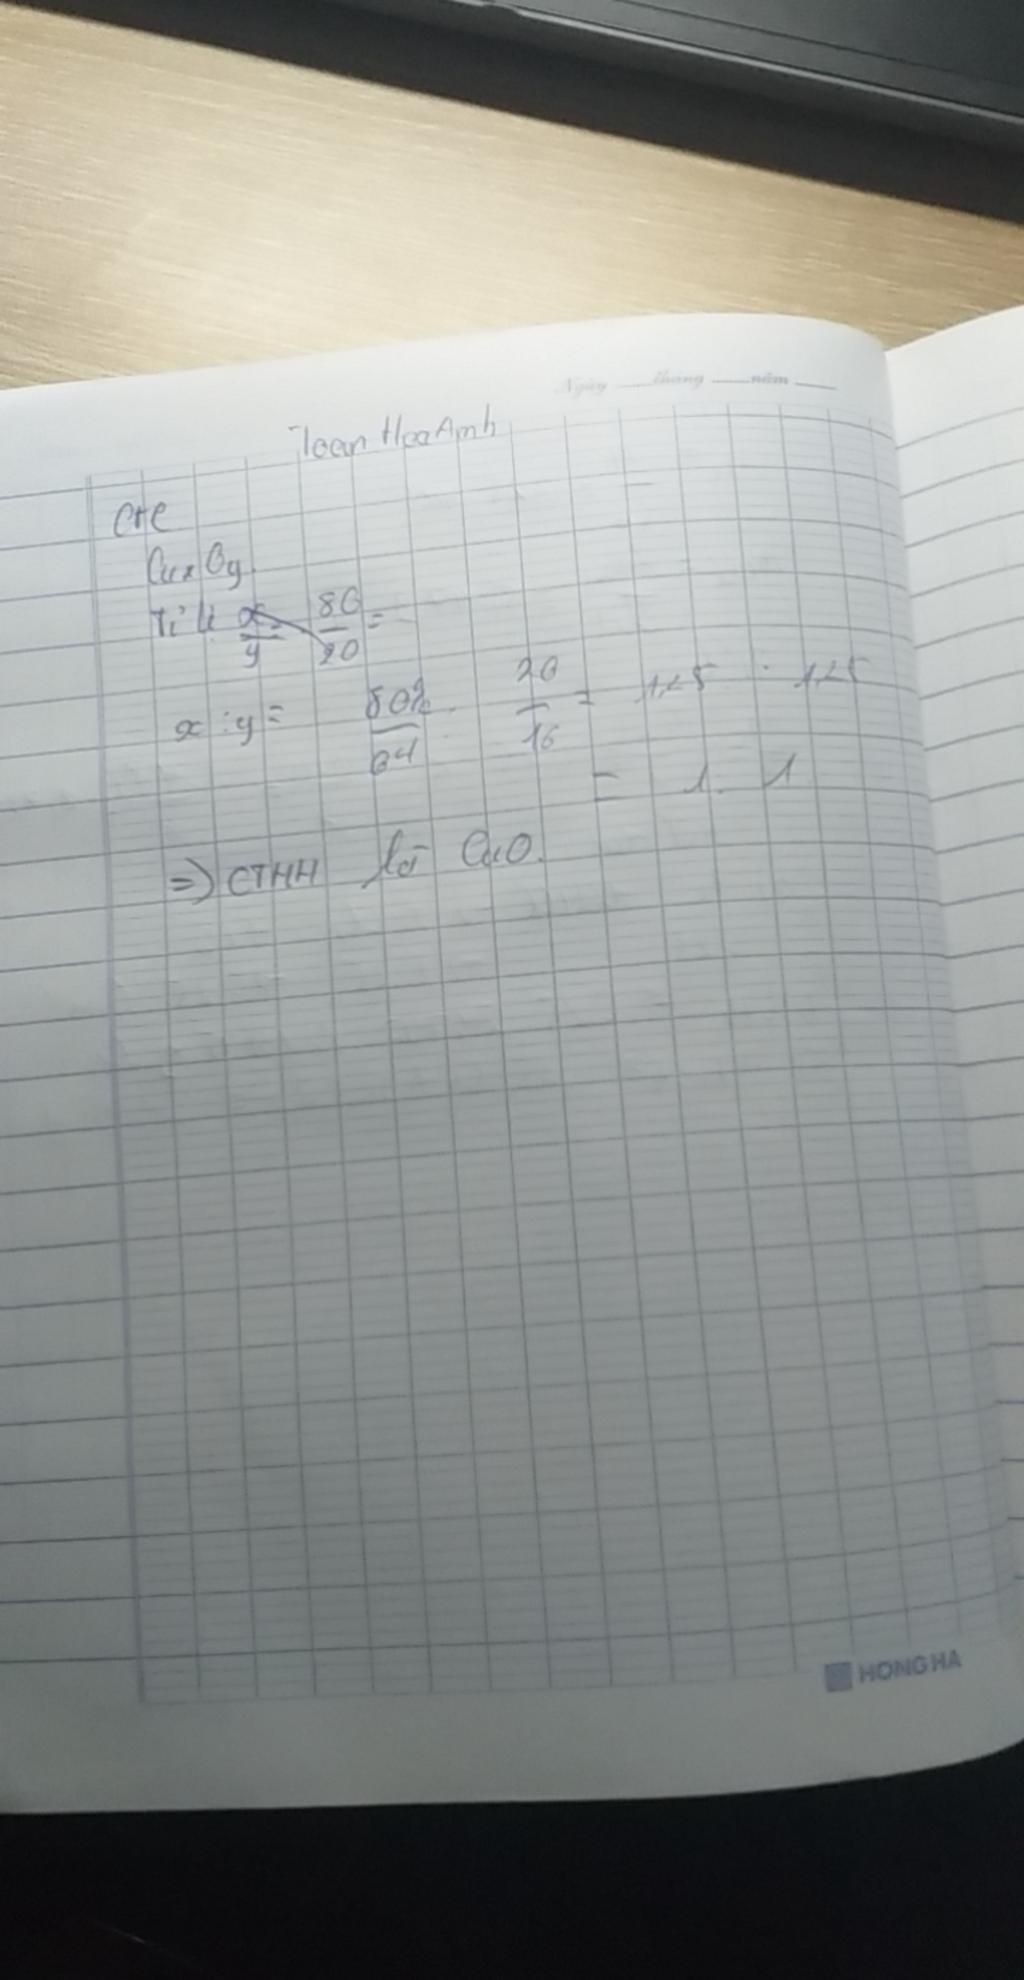 Ngày tháng năm
Toan Hoa Anh
CuxOy
Tỉ lệ x/y = 80/20 =
x : y = 80%/64 : 20/16 = 1,25 : 1,25
= 1 : 1
=> CTHH là CuO.
HONG HA